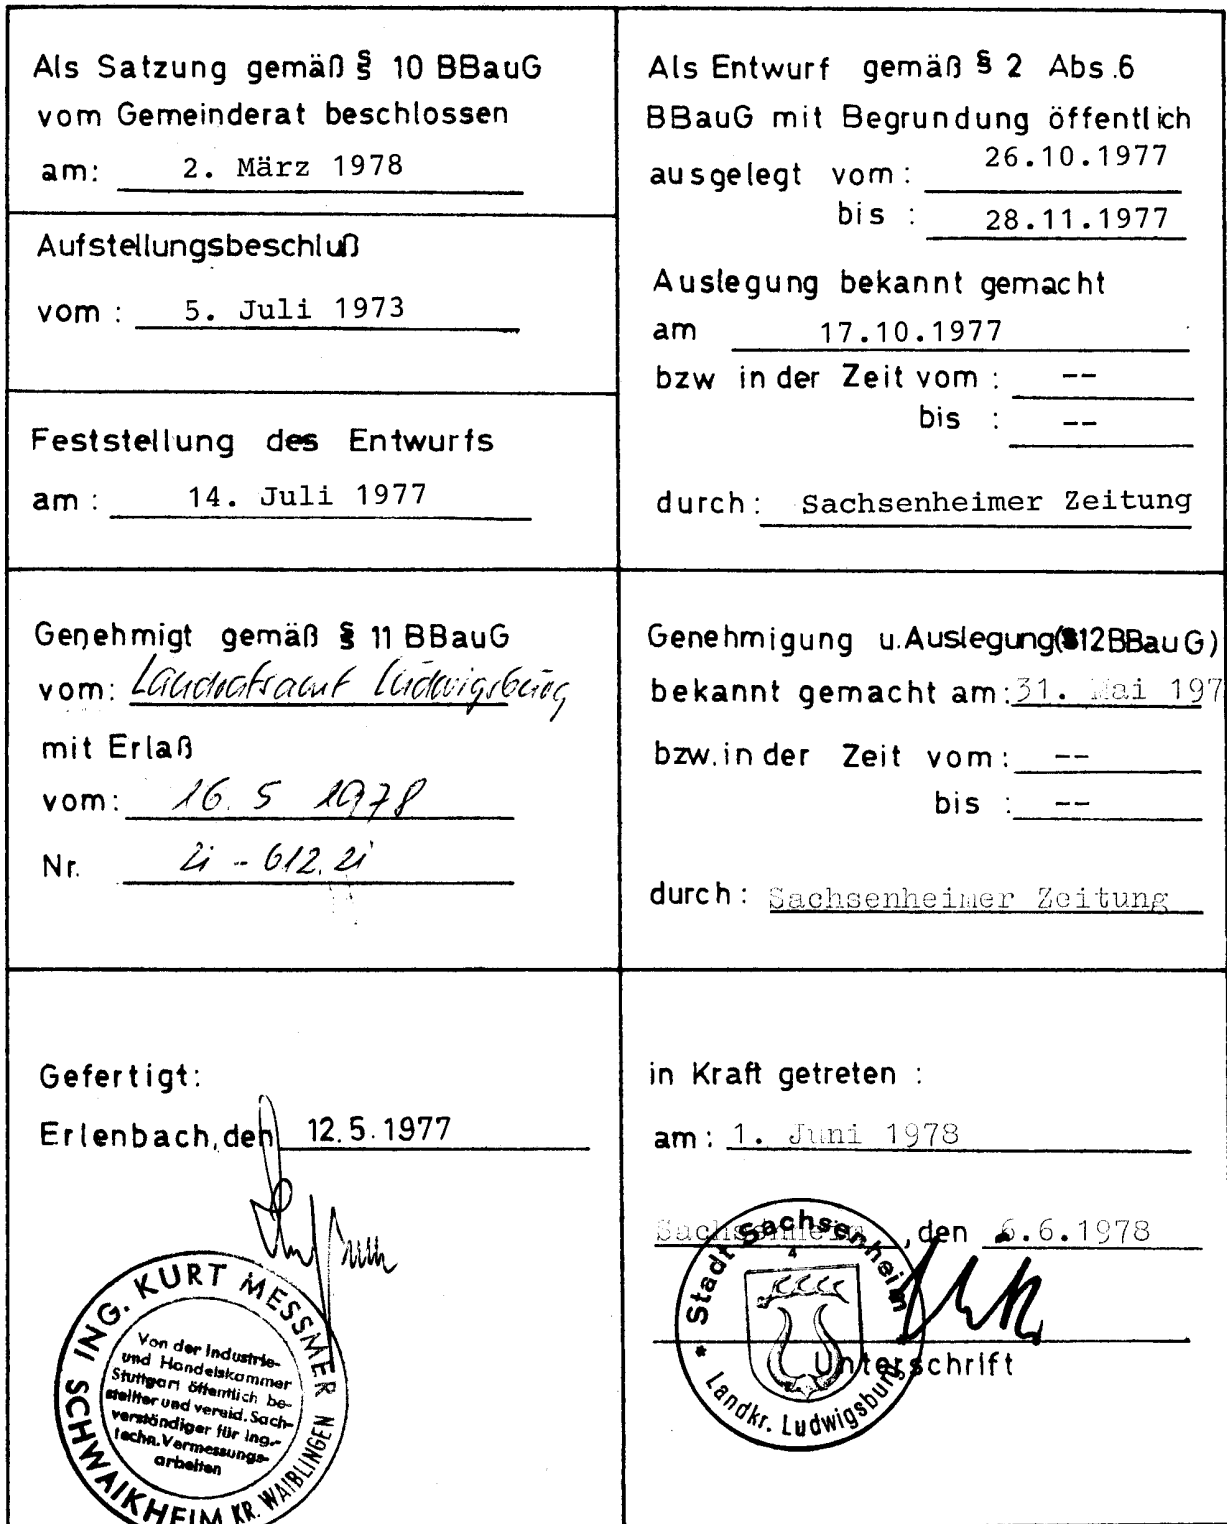 Als Satzung gemäß § 10 BBauG
vom Gemeinderat beschlossen
am: 2. März 1978
Aufstellungsbeschluß
vom : 5. Juli 1973
Feststellung des Entwurfs
am : 14. Juli 1977
Als Entwurf gemäß § 2 Abs.6
BBauG mit Begrundung öffentlich
ausgelegt vom : 26.10.1977
bis : 28.11.1977
Auslegung bekannt gemacht
am 17.10.1977
bzw in der Zeit vom : --
bis : --
durch : Sachsenheimer Zeitung
Genehmigt gemäß § 11 BBauG
vom: Landratsamt Ludwigsburg
mit Erlaß
vom: 16. 5 1978
Nr. 2i - 612. 2i
Genehmigung u. Auslegung (§12 BBauG)
bekannt gemacht am: 31. Mai 197
bzw. in der Zeit vom : --
bis : --
durch : Sachsenheimer Zeitung
Gefertigt:
Erlenbach, den 12.5.1977
ING. KURT MESSMER
SCHWAIKHEIM KR. WAIBLINGEN
Von der Industrie-
und Handelskammer
Stuttgart öffentlich be-
stellter und vereid. Sach-
verständiger für Ing.-
techn. Vermessungs-
arbeiten
in Kraft getreten :
am : 1. Juni 1978
Sachsenheim , den 6.6.1978
Stadt Sachsenheim
4
* Landkr. Ludwigsburg
Unterschrift